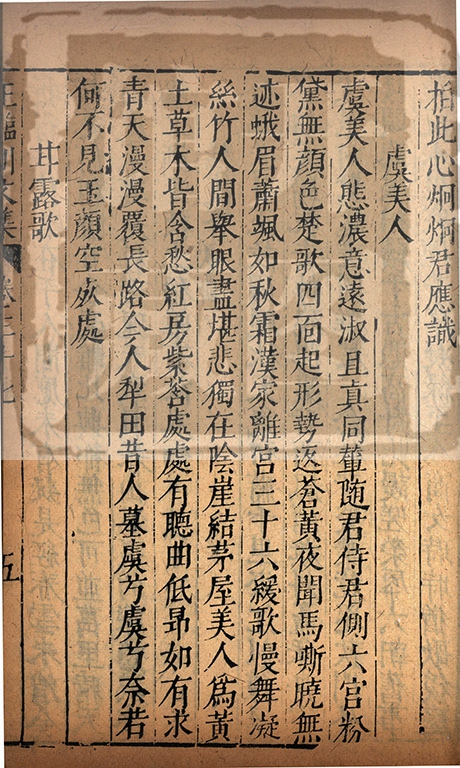 相此心炯炯君應識
虞美人
虞美人態濃意遠淑且真同輦随君侍君側六宫粉
黛無顔色楚歌四面起形勢返蒼黄夜聞馬嘶曉無
迹蛾眉蕭颯如秋霜漢家離宫三十六緩歌慢舞凝
絲竹人間舉眼盡堪悲獨在陰崖結茅屋美人為黄
土草木皆含愁紅房紫莟處處有聽曲低昂如有求
青天漫漫覆長路今人犁田昔人墓虞兮虞兮奈若
何不見玉顔空死處
甘露歌
五